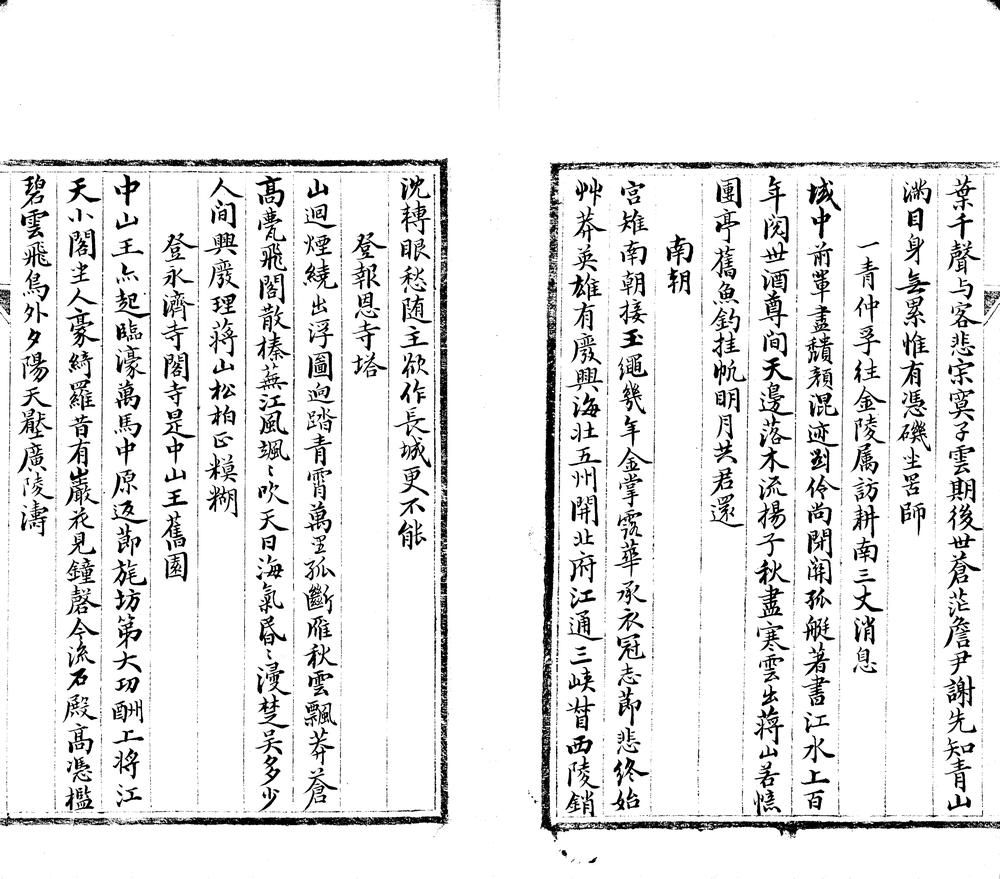 葉千聲与客悲宗寞子雲期後世蒼茫詹尹謝先知青山
滿目身無累惟有憑磯坐呂師
一青仲孚往金陵属訪耕南三丈消息
域中前軰盡赪顏混迹劉伶尚閉関孤艇著書江水上百
年閱丗酒尊间天邊落木流揚子秋盡寒雲出蒋山若憶
團亭舊魚釣挂帆明月共君還
南朝
宫雉南朝接玉繩幾年金掌露華承衣冠志節悲終始
艸莽英雄有廢興海壮五州開北府江通三峡督西陵銷
沈轉眼愁随主欲作長城更不能
登報恩寺塔
山迴煙繞出浮圖迥踏青霄萬里孤斷雁秋雲飄莽蒼
高甍飛閣散榛蕪江風颯〻吹天日海氣昏〻漫楚吴多少
人间興廢理蒋山松柏正糢糊
登永濟寺閣寺是中山王舊園
中山王亦起臨濠萬馬中原返節旄坊第大功酬上将江
天小閣坐人豪綺羅昔有巖花見鐘磬今流石殿高憑檻
碧雲飛鳥外夕陽天壓廣陵濤